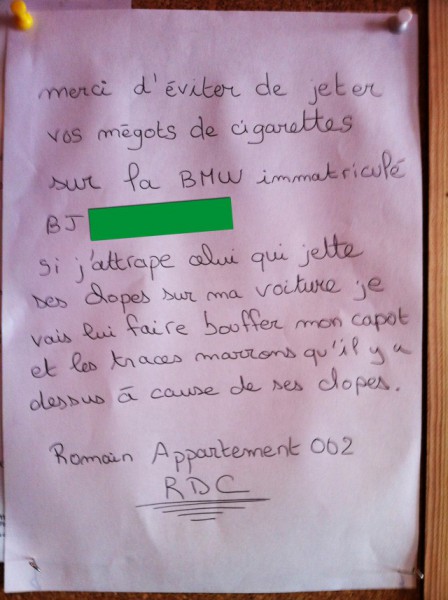 merci d'éviter de jeter
vos mégots de cigarettes
sur la BMW immatriculé
BJ
si j'attrape celui qui jette
ses clopes sur ma voiture je
vais lui faire bouffer mon capot
et les traces marrons qu'il y a
dessus à cause de ses clopes.
Romain Appartement 002
RDC